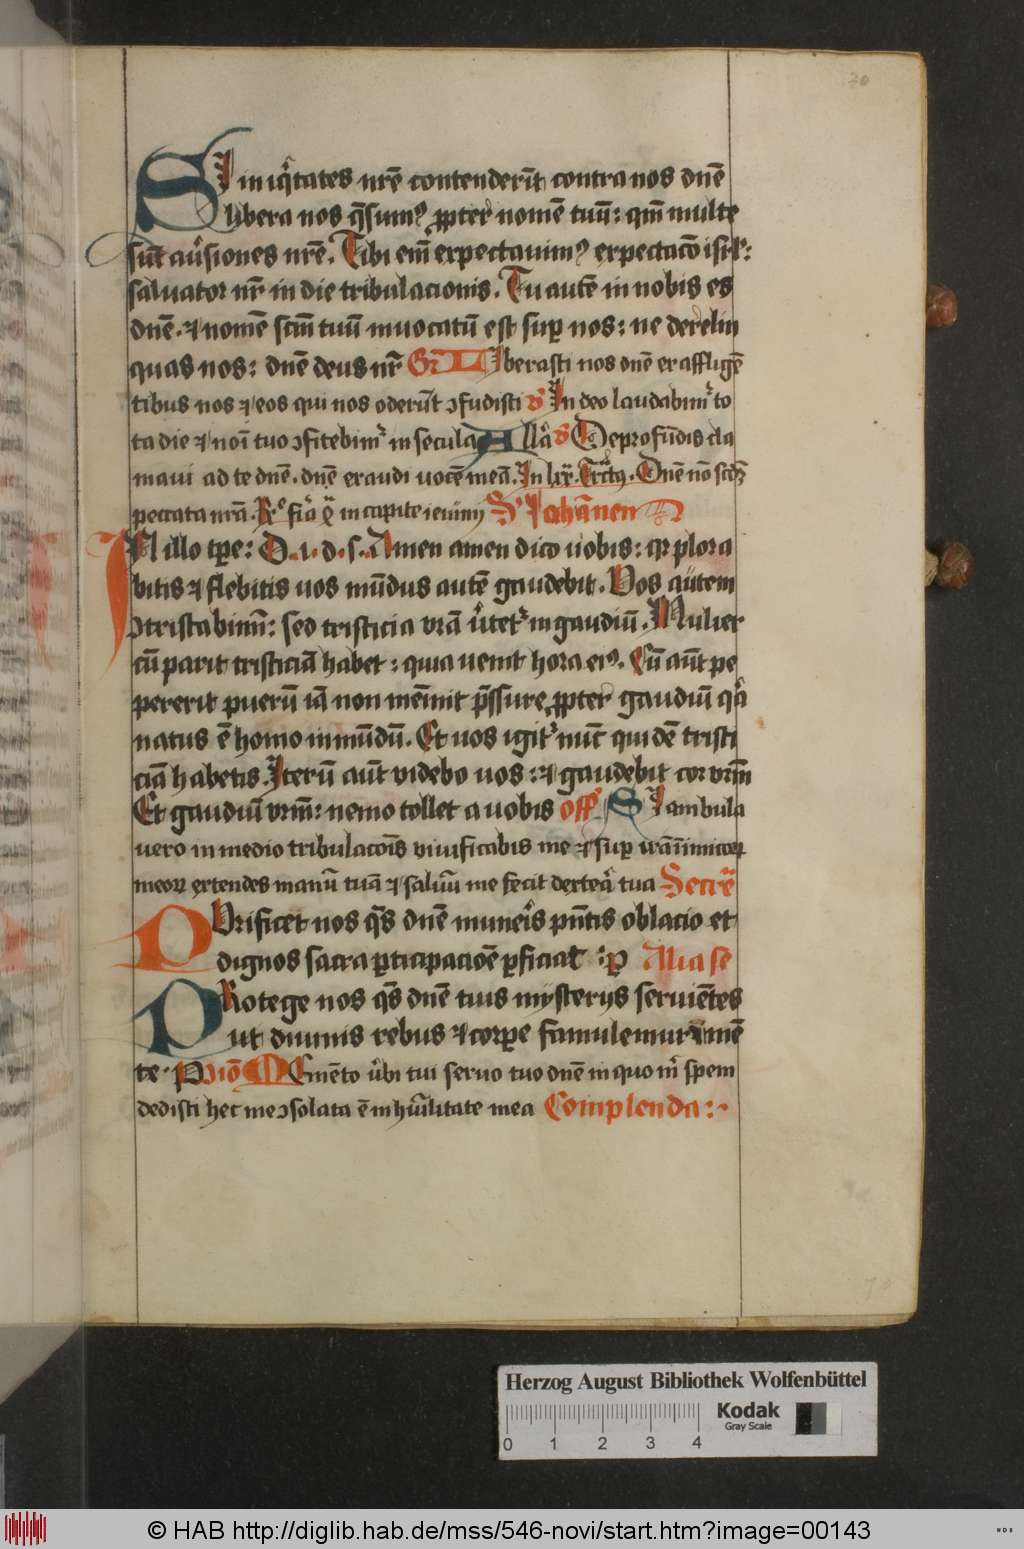 70
SI in iq̄tates nr̄e contenderūt contra nos dn̄e
libera nos q̄sum⁹ ꝓpter nomē tuū: qm̄ multe
sūt au̓siones nr̄e. Tibi em̄ expectauim⁹ expectac̄o isrl̓:
saluator nr̄ in die tribulacionis. Tu autē in nobis es
dn̄e. ⁊ nomē scm̄ tuū inuocatū est suꝑ nos: ne derelin
quas nos: dn̄e deus nr̄ Gr̄ LIberasti nos dn̄e ex affligē
tibus nos ⁊ eos qui nos oderūt ɔfudisti v̓ In deo laudabim᷒ to
ta die ⁊ noī tuo ɔfitebim᷒ in secula All̓a v̓ De profūdis cla
maui ad te dn̄e. dn̄e exaudi vocē meā. In lxx̄. Trct⁹. Dn̄e nō scd̄ꝫ
peccata nr̄a. in capite ieiunij S̓ Iohannen
IN illo tꝑe: D. i. d. s. Amen amen dico vobis: qꝛ plora
bitis ⁊ flebitis vos mūdus autē gaudebit. Vos autem
ɔtristabimī: sed tristicia vr̄a v̓tet᷒ in gaudiū. Mulier
cū parit tristiciā habet: quia venit hora ei⁹. Cū aūt pe
pererit puerū iā non memīit p̄ssure ꝓpter gaudiū qꝛ
natus ē homo in mūdū. Et vos igit᷒ nūc quidē tristi
ciā habetis. Iterū aūt videbo vos: ⁊ gaudebit cor vr̄m
Et gaudiū vr̄m: nemo tollet a vobis off̓. SI ambula
uero in medio tribulacōis viuificabis me ⁊ suꝑ irā inimicoꝝ
meoꝝ extendes manū tuā ⁊ saluū me fecit dextea̓ tua Secre̅
PVrificet nos q̄s dn̄e muneris pn̄tis oblacio et
dignos sacra ꝑticipacioē ꝑficiat :ꝑ Alia se
PRotege nos q̄s dn̄e tuis mysterijs seruiētes
ut diuinis rebus ⁊ corꝑe famulemur ⁊ mē
te. P Cōio MEmēto v̓bi tui seruo tuo dn̄e in quo m̓ spem
dedisti hec me ɔsolata ē in hūilitate mea Complenda:
Herzog August Bibliothek Wolfenbüttel
0 1 2 3 4
Kodak
Gray Scale
© HAB http://diglib.hab.de/mss/546-novi/start.htm?image=00143